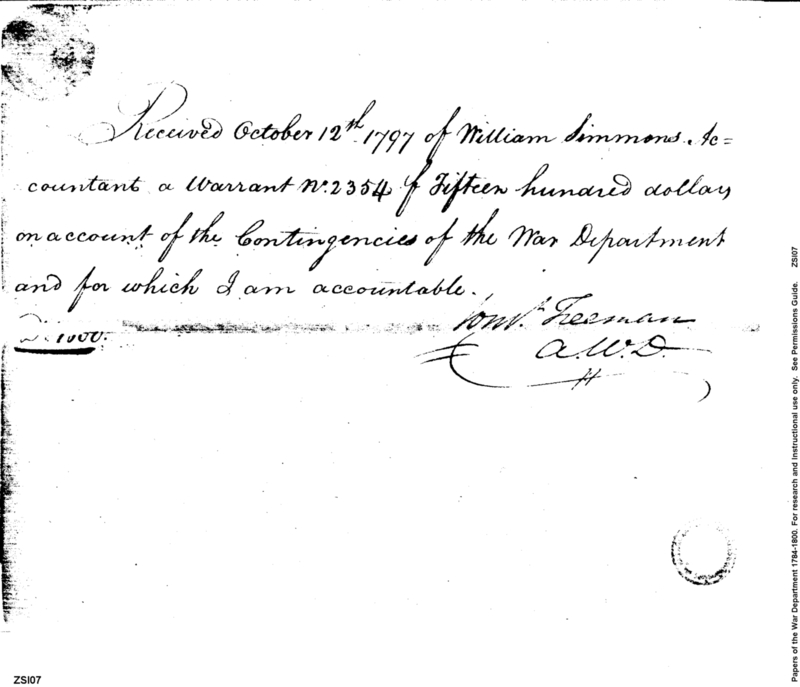 Received October 12th. 1797 of William Simmons Ac=
countant a Warrant No. 2354 for Fifteen hundred dollars
on account of the Contingencies of the War Department
and for which I am accountable.
Freeman
A.W.D.
ZSI07
Papers of the War Department 1784-1800. For research and Instructional use only. See Permissions Guide. ZSI07